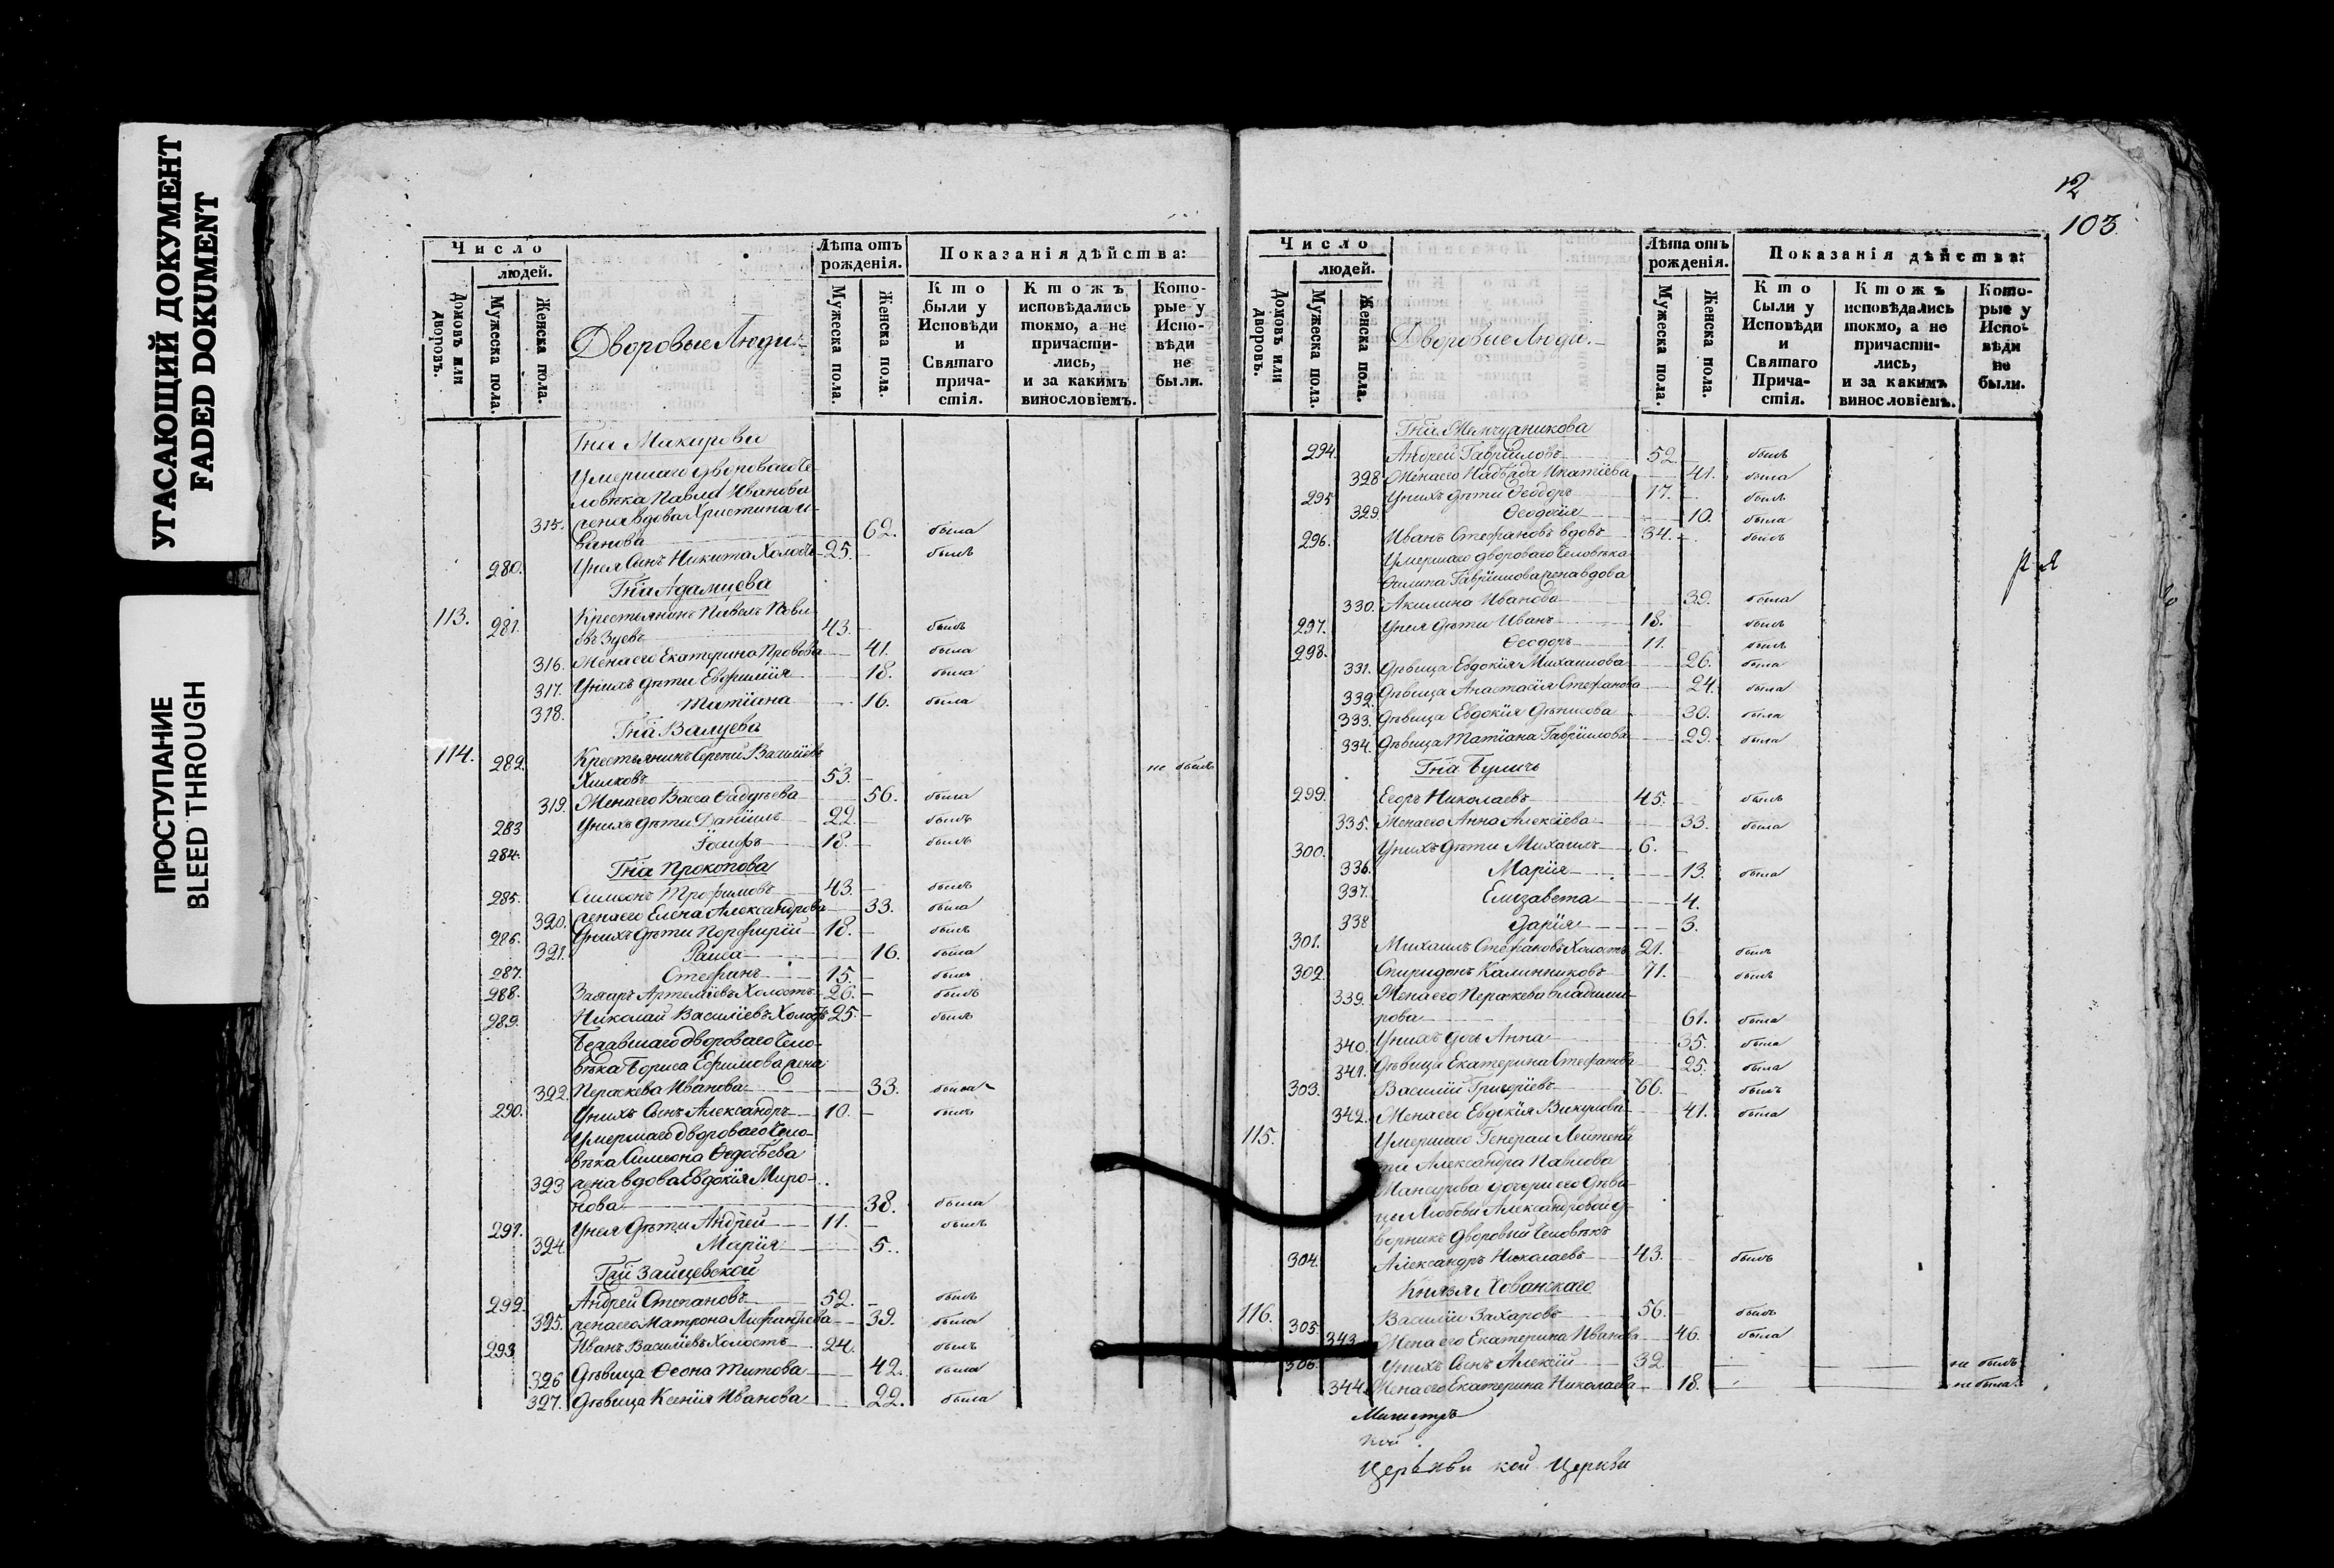 УГАСАЮЩИЙ ДОКУМЕНТ
FADED DOKUMENT
ПРОСТУПАНИЕ
BLEED THROUGH
Число
людей.
Домовъ или дворовъ.
Мужеска пола.
Женска пола.
Дворовые Люди.
Лѣта отъ рожденія.
Мужеска пола.
Женска пола.
Показанія дѣйства:
Кто были у Исповѣди и Святаго причастія.
Ктожъ исповѣдались токмо, а не причастились, и за какимъ винословіемъ.
Которые у Исповѣди не были.
Гна Макарова
Умершаго двороваго Че-
ловѣка Павла Иванова
315. жена вдова Христина И-
ванова 62. была
280. Унея Сынъ Никита Холостъ 25. былъ
Гна Адамцева
113. 281. Крестьянинъ Павелъ Павл
овъ Зуевъ 43. былъ
316. Жена его Екатерина Провова 41. была
317. Унихъ дѣти Евфимія 18. была
318. Татіана 16. была
Гна Валуева
114. 282. Крестьянинъ Сергей Василіевъ
Хилковъ 53. не былъ
319. Жена его Васса Фадѣева 56. была
283 Унихъ дѣти Даніилъ 22. былъ
284. Іосифъ 18. былъ
Гна Прокопова
285. Симеонъ Трофимовъ 43. былъ
320. жена его Елена Александрова 33. была
286. Унихъ дѣти Порфирій 18. былъ
321. Раиса 16. была
287. Стефанъ 15. былъ
288. Захаръ Артеміевъ Холостъ 26. былъ
289. Николай Василіевъ Холостъ 25. былъ
Бежавшаго двороваго Чело-
вѣка Бориса Ефимова жена
322. Параскева Иванова 33. была
290. Унихъ Сынъ Александръ 10. былъ
Умершаго двороваго Чело-
вѣка Симеона Федосѣева
323 жена вдова Евдокія Миро-
нова 38. была
291. Унея дѣти Андрей 11. былъ
324. Марія 5.
Гжи Зайцевской
292. Андрей Степановъ 52. былъ
325. жена его Матрона Лифантьева 39. была
293 Иванъ Василіевъ Холостъ 24. былъ
326 Дѣвица Феона Титова 42. была
327. Дѣвица Ксенія Иванова 22. была
12
103
Число
людей.
Домовъ или дворовъ.
Мужеска пола.
Женска пола.
Дворовые Люди.
Лѣта отъ рожденія.
Мужеска пола.
Женска пола.
Показанія дѣйства:
Кто были у Исповѣди и Святаго Причастія.
Ктожъ исповѣдались токмо, а не причастились, и за какимъ винословіемъ.
Которые у Исповѣди не были.
294. Андрей Гавріиловъ 52 былъ
328 Жена его Надѣжда Игнатіева 41. была
295 Унихъ дѣти Феодоръ 17. былъ
329. Феодосія 10. была
296. Иванъ Стефановъ вдовъ 34. былъ
Умершаго двороваго Человѣка
Гавріилова жена вдова
330. Акилина Иванова 39. была
297. Унея дѣти Иванъ 18. былъ
298. Феодоръ 11. былъ
331. Дѣвица Евдокія Михаилова 26. была
332. Дѣвица Анастасія Стефанова 24. была
333. Дѣвица Евдокія Денисова 30. была
334. Дѣвица Татіана Гавріилова 29. была
Гна Буличь
299. Егоръ Николаевъ 45. былъ
335. Жена его Анна Алексіева 33. была
300. Унихъ дѣти Михаилъ 6.
336. Марія 13. была
337. Елизавета 4.
338 Дарія 3.
301. Михаилъ Стефановъ Холостъ 21. былъ
302. Спиридонъ Калинниковъ 71. былъ
339. Жена его Параскева Владими-
рова 61. была
340. Унихъ дочь Анна 35. была
341. Дѣвица Екатерина Стефанова 25. была
303. Василій Григоріевъ 66. былъ
342. Жена его Евдокія Викулова 41. была
115. Умершаго Генерал Лейтена
та Александра Павлова
Мансурова дочери его Дѣви-
цы Любови Александровой д-
ворникъ дворовый Человѣкъ
304. Александръ Николаевъ 43. былъ
Князя Хованскаго
116. 305. Василій Захаровъ 56. былъ
343 Жена его Екатерина Иванова 46. была
306. Унихъ Сынъ Алексій 32. не былъ
344. Жена его Екатерина Николаева 18. не была
Магистръ
кой
Церькви кой Церкви